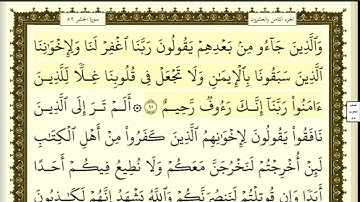 الجزء الثامن والعشرون سورة الحشر ٥٩
وَٱلَّذِينَ جَآءُو مِنۢ بَعۡدِهِمۡ يَقُولُونَ رَبَّنَا ٱغۡفِرۡ لَنَا وَلِإِخۡوَٰنِنَا
ٱلَّذِينَ سَبَقُونَا بِٱلۡإِيمَٰنِ وَلَا تَجۡعَلۡ فِي قُلُوبِنَا غِلّٗا لِّلَّذِينَ
ءَامَنُواْ رَبَّنَآ إِنَّكَ رَءُوفٞ رَّحِيمٌ ١٠ ۞ أَلَمۡ تَرَ إِلَى ٱلَّذِينَ
نَافَقُواْ يَقُولُونَ لِإِخۡوَٰنِهِمُ ٱلَّذِينَ كَفَرُواْ مِنۡ أَهۡلِ ٱلۡكِتَٰبِ
لَئِنۡ أُخۡرِجۡتُمۡ لَنَخۡرُجَنَّ مَعَكُمۡ وَلَا نُطِيعُ فِيكُمۡ أَحَدًا
أَبَدٗا وَإِن قُوتِلۡتُمۡ لَنَنصُرَنَّكُمۡ وَٱللَّهُ يَشۡهَدُ إِنَّهُمۡ لَكَٰذِبُونَ